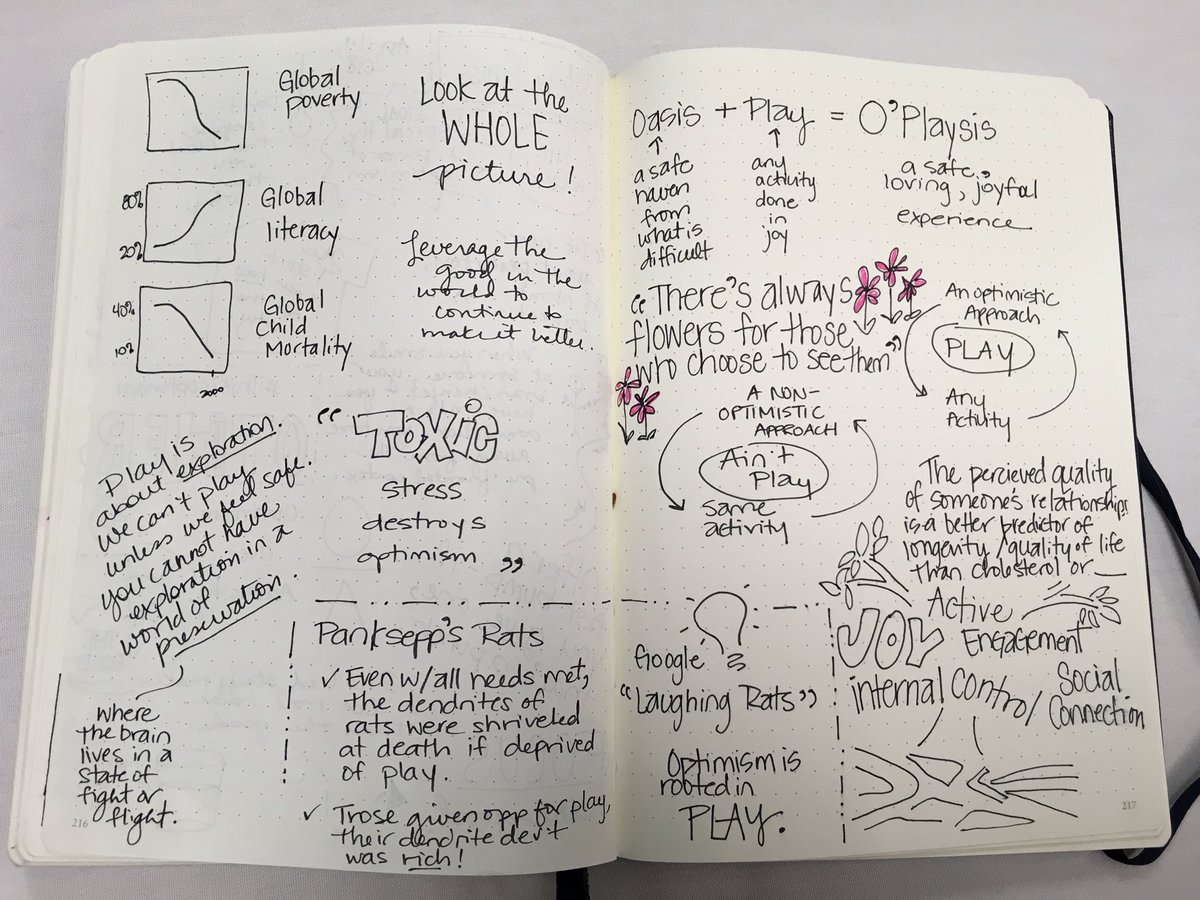 Global
poverty
80%
20%
Global
literacy
40%
10%
2000
Global
Child
Mortality
Look at the
WHOLE
picture!
Leverage the
good in the
world to
continue to
make it better.
Play is
about exploration.
We can't play
unless we feel safe.
you cannot have
exploration in a
world of
preservation.
where
the brain
lives in a
state of
fight or
flight.
216
"Toxic
stress
destroys
optimism"
Panksepp's Rats
✓ Even w/all needs met,
the dendrites of
rats were shriveled
at death if deprived
of play.
✓ Those given opp for play,
their dendrite dev't
was rich!
Oasis + Play = O'Playsis
a safe
haven
from
what is
difficult
any
activity
done
in
joy
a safe,
loving, joyful
experience
"There's always
flowers for those
who choose to see them"
An optimistic
Approach
PLAY
Any
Activity
A NON-
OPTIMISTIC
APPROACH
Ain't
Play
same
activity
The percieved quality
of someone's relationships
is a better predictor of
longevity/quality of life
than cholesterol or __
Google
"Laughing Rats"
Optimism is
rooted in
PLAY.
Active
JOY Engagement
internal control
Social
Connection
217